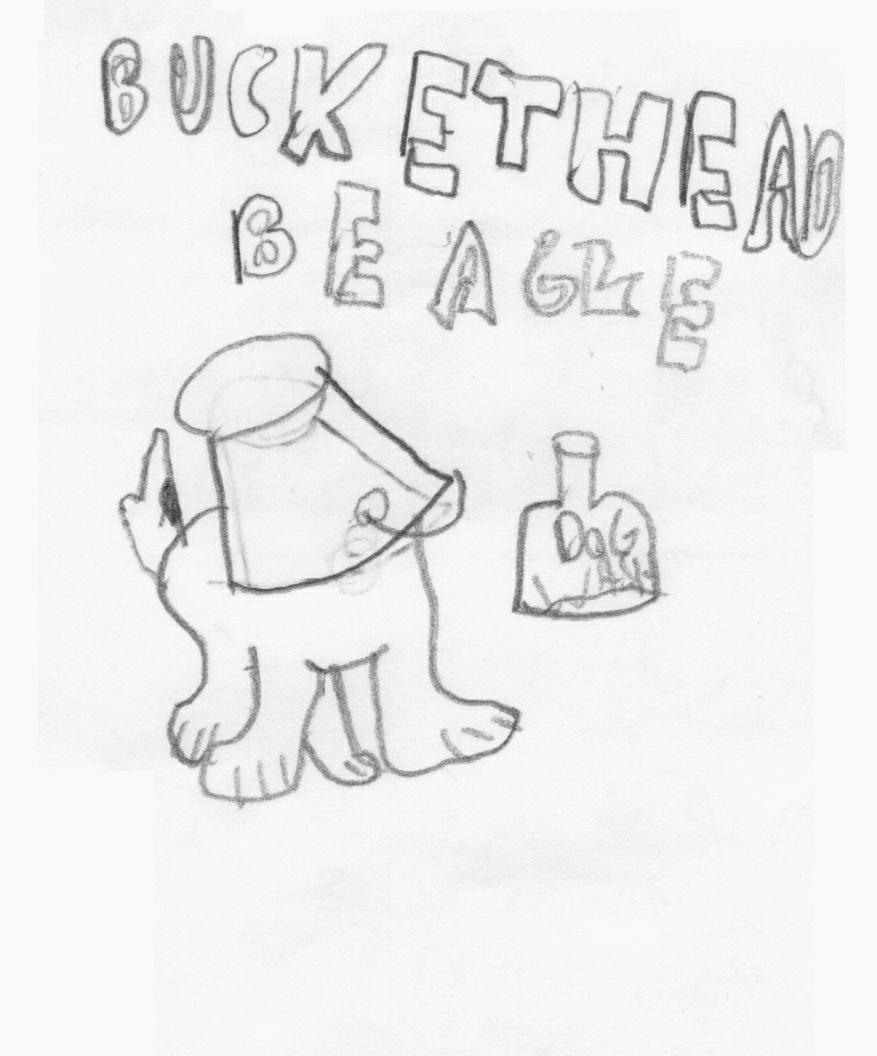 BUCKETHEAD
BEAGLE
DOG